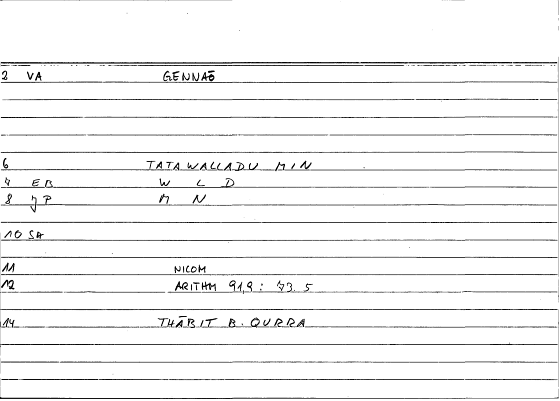 2 VA GENNAŌ
6 TATAWALLADU MIN
7 EB W L D
8 JP M N
10 SA
11 NICOM
12 ARITHM 91,9 : 73.5
14 THĀBIT B. QURRA